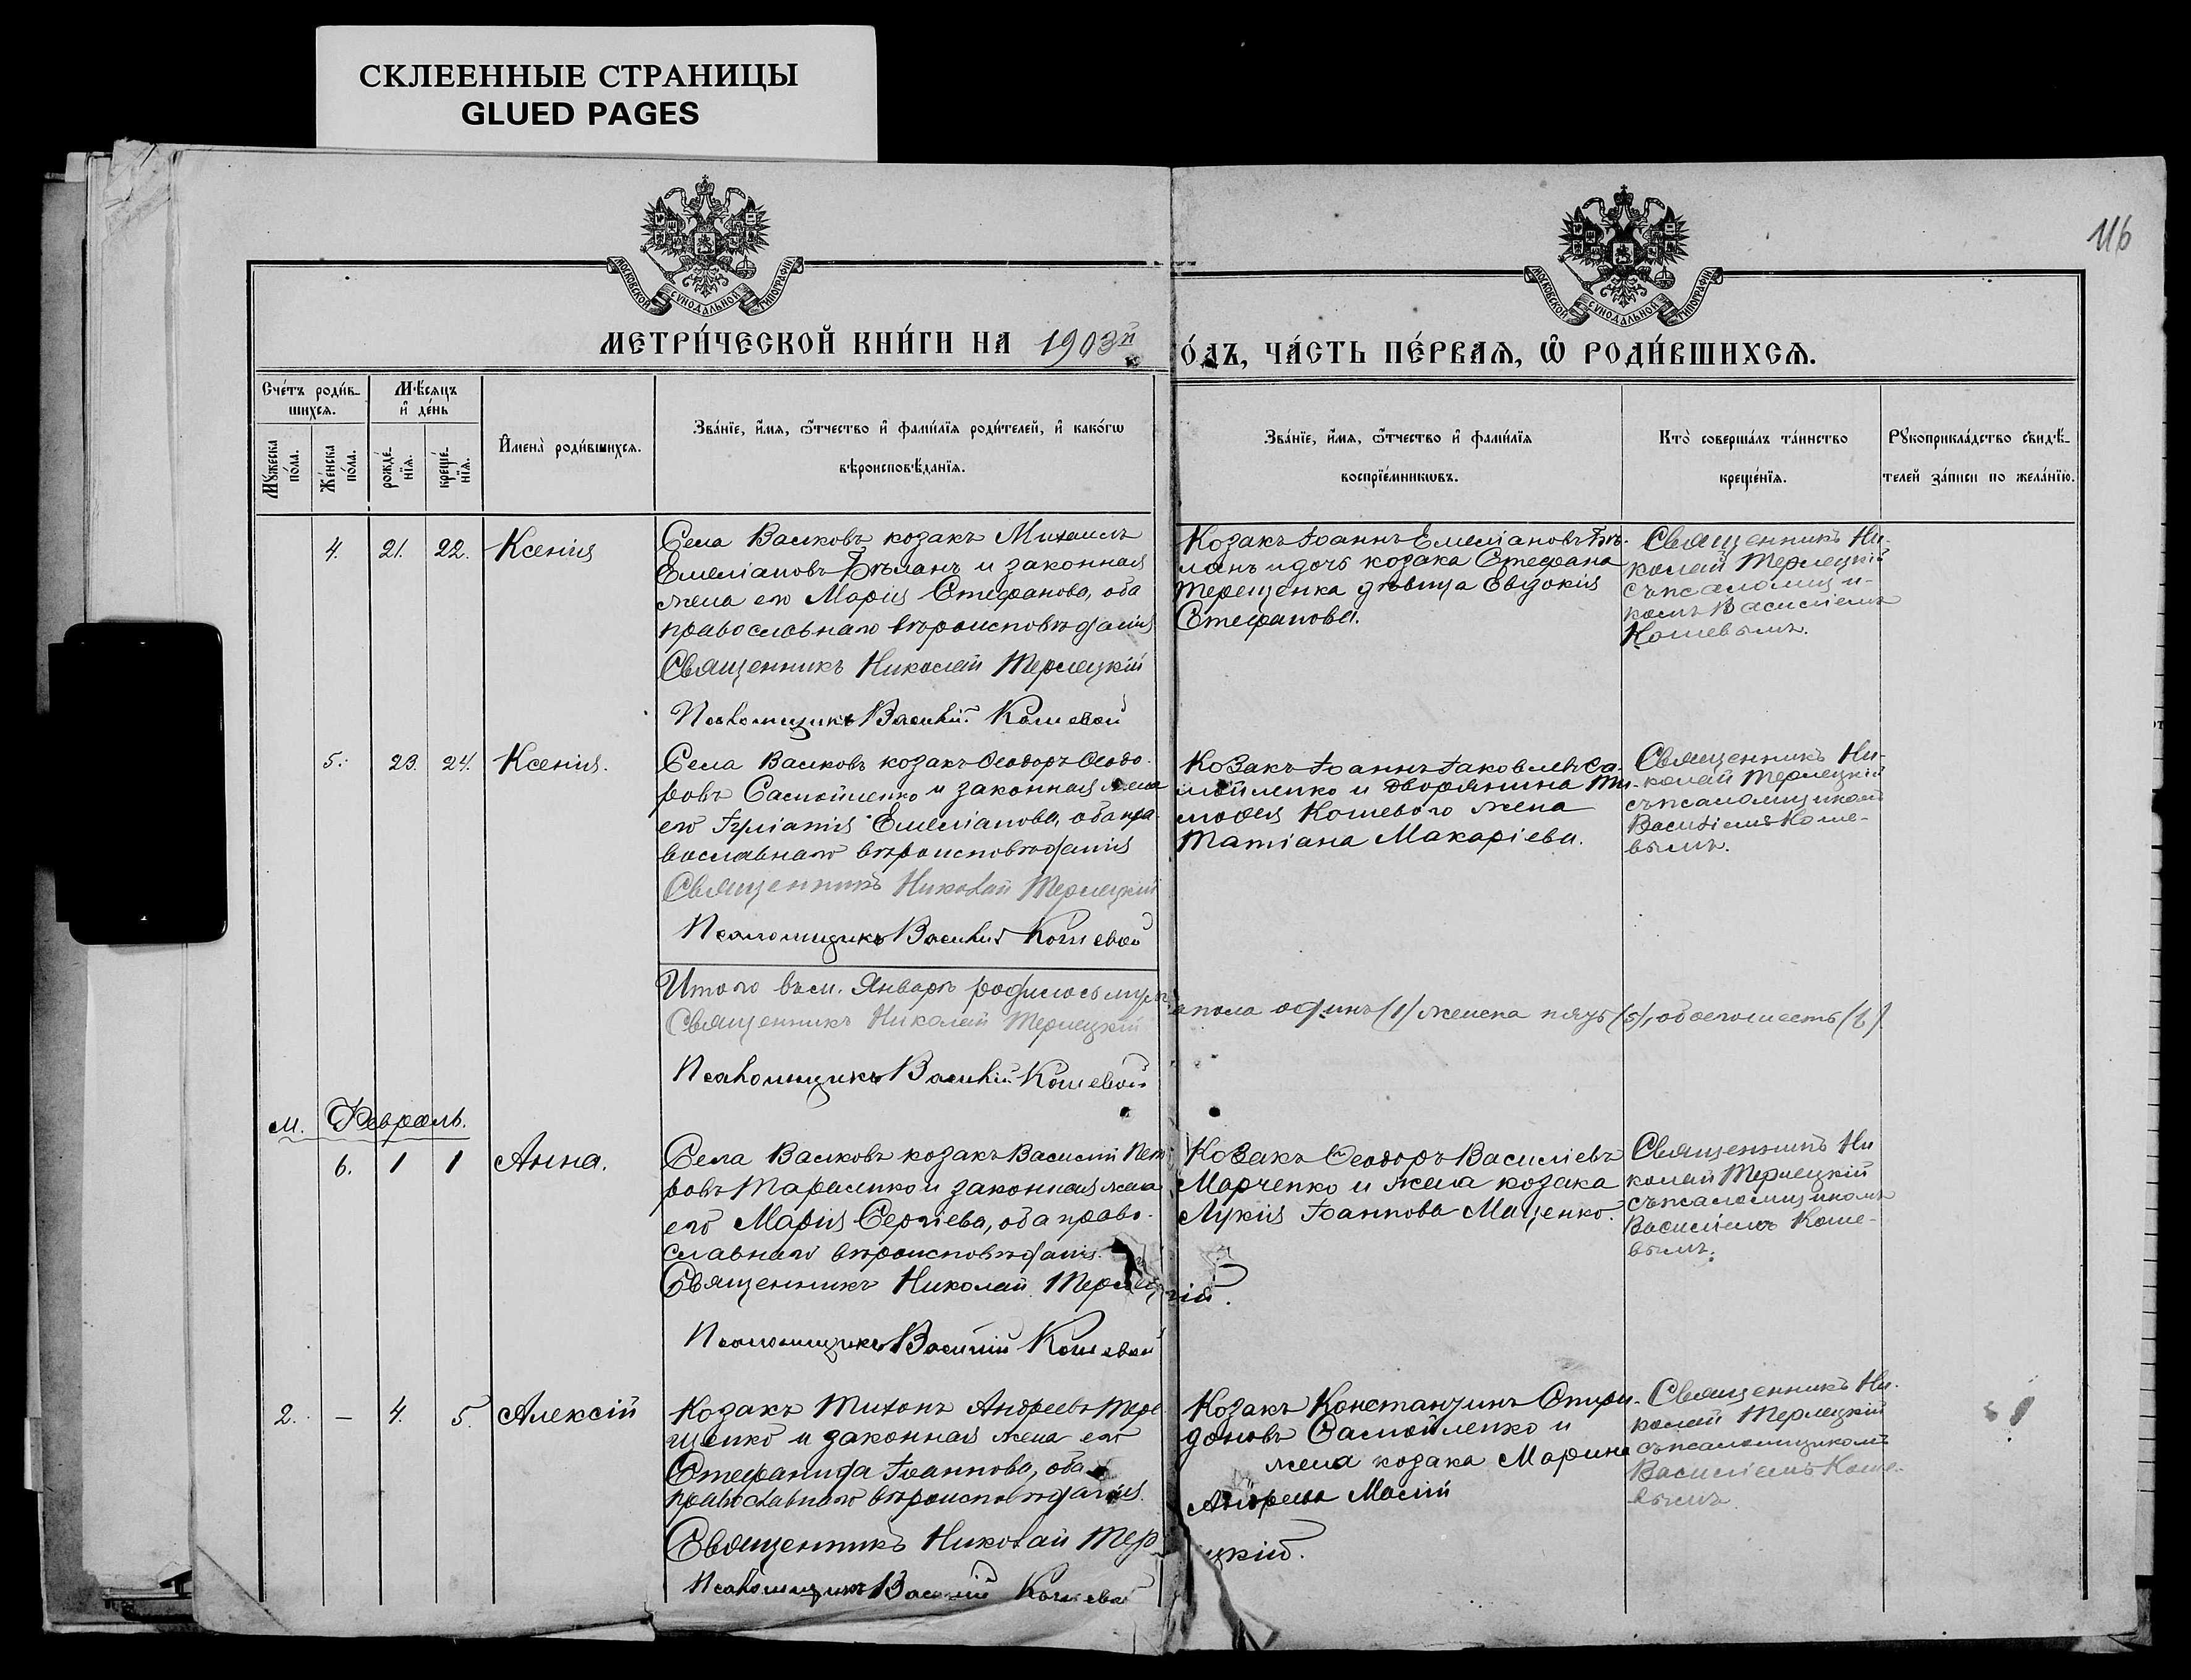 СКЛЕЕННЫЕ СТРАНИЦЫ
GLUED PAGES
116
МОСКОВСКОЙ СѴНОДАЛЬНОЙ ТИПОГРАФІИ
МОСКОВСКОЙ СѴНОДАЛЬНОЙ ТИПОГРАФІИ
МЕТРИ́ЧЕСКОЙ КНИ́ГИ НА 1903й
О́ДЪ, ЧА́СТЬ ПЕ́РВАѦ, Ѿ РОДИ́ВШИХСѦ.
Сче́тъ роди́в-
шихсѧ.
Мꙋ́жеска по́ла.
Же́нска по́ла.
Мѣ́сяцъ
и де́нь
рожде́нїѧ.
креще́нїѧ.
Имена̀ роди́вшихсѧ.
Зва́нїе, и́мѧ, ѻ́тчество и фами́лїѧ роди́телей, и како́гѡ
вѣроисповѣ́данїѧ.
Зва́нїе, и́мѧ, ѻ́тчество и фами́лїѧ
воспрїе́мникѡвъ.
Кто̀ соверша́лъ та́инство
креще́нїѧ.
Рꙋкоприкла́дство свидѣ́-
телей за́писи по жела́нїю.
4. 21. 22. Ксенія
Села Валковъ козакъ Михаилъ
Емеліановъ Бѣланъ и законная
жена его Марія Стефанова, оба
православнаго вѣроисповѣданія
Священникъ Николай Терлецкій
Псаломщикъ Василій Кошевой
Козакъ Іоаннъ Емеліановъ Бѣ-
ланъ и дочь козака Стефана
Терещенка дѣвица Евдокія
Стефанова.
Священникъ Ни-
колай Терлецкій
съ псаломщи-
комъ Василіемъ
Кошевымъ.
5. 23. 24. Ксенія.
Села Валковъ козакъ Ѳеодоръ Ѳеодо-
ровъ Самойленко и законная жена
его Іуліанія Емеліанова, оба пра-
вославнаго вѣроисповѣданія
Священникъ Николай Терлецкій
Псаломщикъ Василій Кошевой
Козакъ Іоаннъ Іаковлевъ Са-
мойленко и дворянина Ти-
моѳея Кошевого жена
Татіана Макаріева.
Священникъ Ни-
колай Терлецкій
съ псаломщикомъ
Василіемъ Коше-
вымъ.
Итого въ м. Январѣ родилось муж
а пола одинъ (1) женска пять (5), обоего шесть (6).
Священникъ Николай Терлецкій
Псаломщикъ Василій Кошевой
м. Февраль.
6. 1 1 Анна.
Села Валковъ козакъ Василій Пет-
ровъ Тарасенко и законная жена
его Марія Сергіева, оба право-
славнаго вѣроисповѣданія.
Священникъ Николай Терлец кій.
Псаломщикъ Василій Кошевой
Козакъ Ѳеодоръ Василіевъ
Марченко и жена козака
Лукія Іоаннова Маценко.
Священникъ Ни
колай Терлецкій
съ псаломщикомъ
Василіемъ Коше-
вымъ.
2. – 4. 5. Алексій
Козакъ Тихонъ Андреевъ Тере-
щенко и законная жена его
Стефанида Іоаннова, оба
православнаго вѣроисповѣданія.
Священникъ Николай Тер цкій.
Псаломщикъ Василій Кошевой
Козакъ Константинъ Спири-
доновъ Самойленко и
жена козака Марина
Андреева Маслій
Священникъ Ни-
колай Терлецкій
съ псаломщикомъ
Василіемъ Коше-
вымъ.